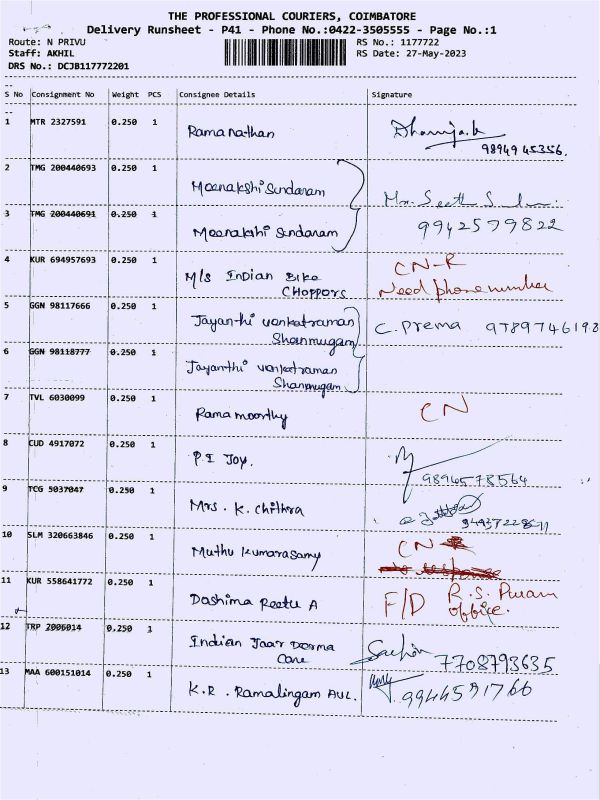 THE PROFESSIONAL COURIERS, COIMBATORE
Delivery Runsheet - P41 - Phone No.:0422-3505555 - Page No.:1
Route: N PRIVU RS No.: 1177722
Staff: AKHIL RS Date: 27-May-2023
DRS No.: DCJB117772201
S No Consignment No Weight PCS Consignee Details Signature
1 MTR 2327591 0.250 1 Ramanathan
98949 45356.
2 TMG 200440693 0.250 1 Meenakshi Sundaram
3 TMG 200440691 0.250 1 Meenakshi Sundaram 9942579822
4 KUR 694957693 0.250 1 M/s Indian Bike CN-R
Choppors Need phone number
5 GGN 98117666 0.250 1 Jayanthi venkatraman C. Prema 9789746198
Shanmugam
6 GGN 98118777 0.250 1 Jayanthi venkatraman
Shanmugam
7 TVL 6030099 0.250 1 Ramamoorthy CN
8 CUD 4917072 0.250 1 P I Joy.
9894578564
9 TCG 5037047 0.250 1 Mrs. K. Chithra
10 SLM 320663846 0.250 1 Muthu Kumarasamy CN
11 KUR 558641772 0.250 1 Dashima Reetu A F/D R.S. Puram
office.
12 TRP 2006014 0.250 1 Indian Jaar Derma
Care 7708793635
13 MAA 600151014 0.250 1 K.R. Ramalingam AUL.